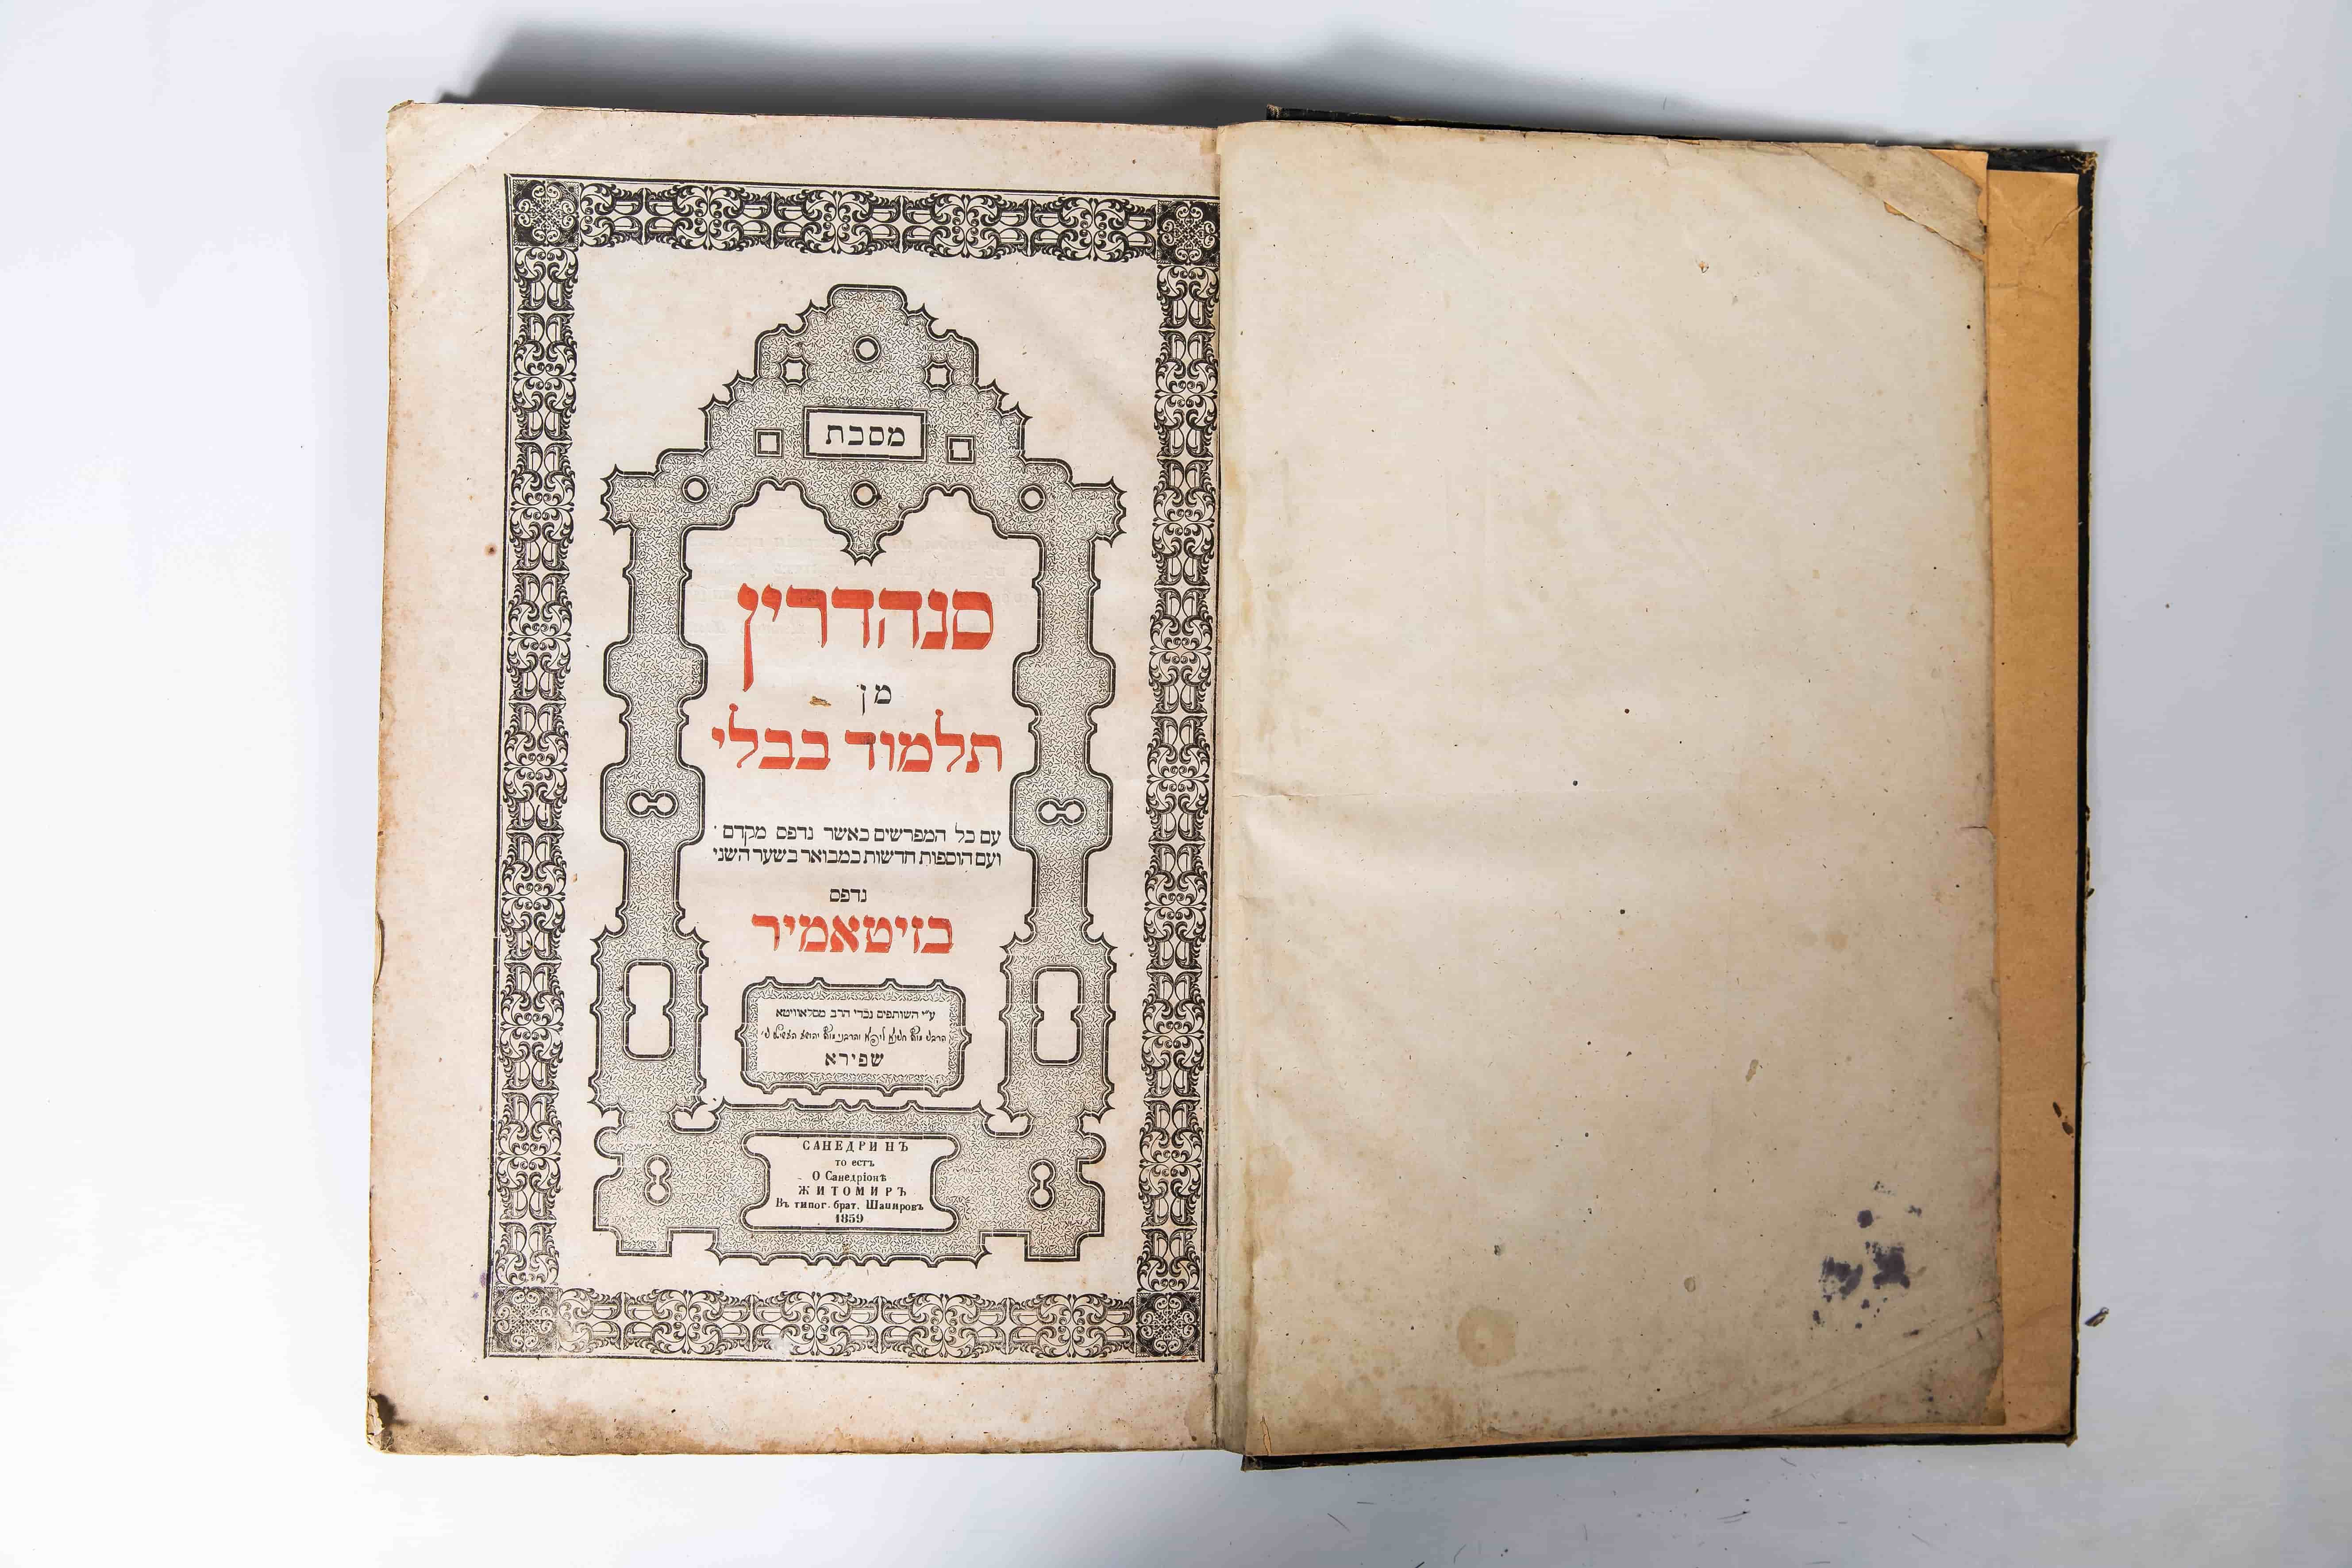 מסכת
סנהדרין
מן
תלמוד בבלי
עם כל המפרשים כאשר נדפס מקדם
ועם הוספות חדשות כמבואר בשער השני
נדפס
בזיטאמיר
ע״י השותפים נכדי הרב מסלאוויטא
שפירא
САНЕДРИНЪ
то есть
О Санедріонѣ
ЖИТОМИРЪ
Въ типог. брат. Шапировъ
1859